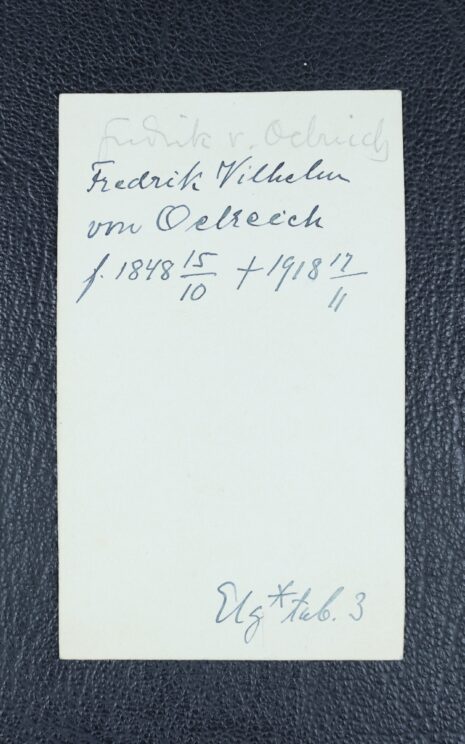 Fredrik v. Oelreich
Fredrik Vilhelm
von Oelreich
f. 1848 15/10 + 1918 17/11
Elg * tab. 3